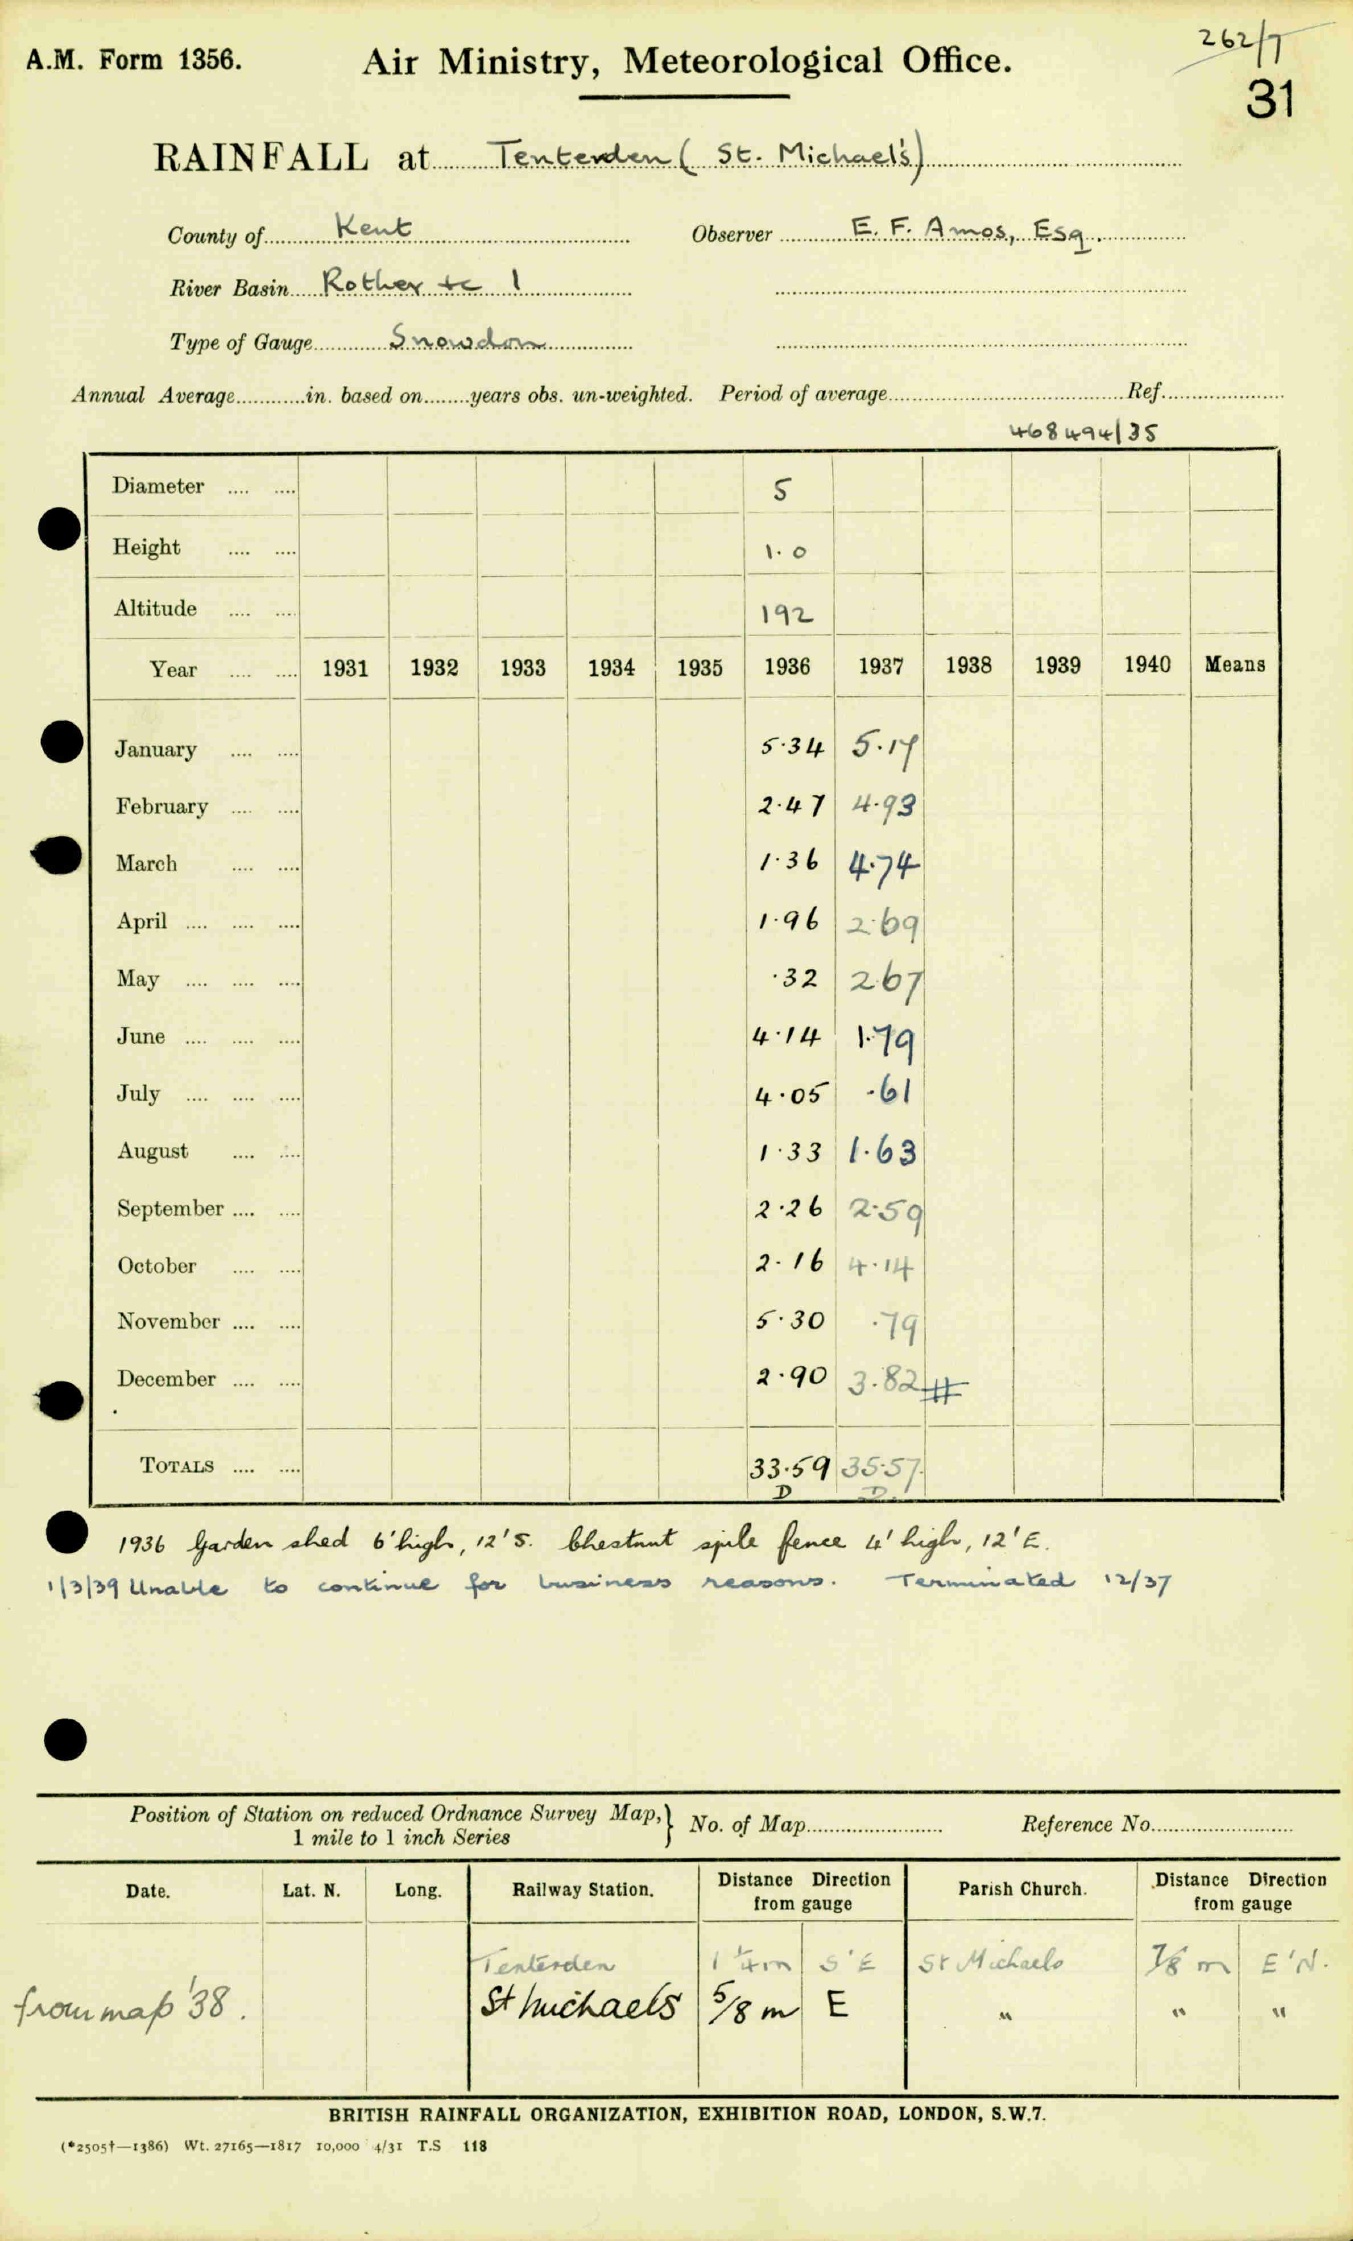 262/7
A.M. Form 1356. Air Ministry, Meteorological Office.
31
RAINFALL at Tenterden ( St. Michael's)
County of Kent Observer E. F. Amos, Esq.
River Basin Rother &c 1
Type of Gauge Snowdon
Annual Average............in. based on........years obs. un-weighted. Period of average.................... Ref.............
468494/35
Diameter .... .... 5
Height .... .... 1.0
Altitude .... .... 192
Year .... .... 1931 1932 1933 1934 1935 1936 1937 1938 1939 1940 Means
January .... .... 5.34 5.17
February .... .... 2.47 4.93
March .... .... 1.36 4.74
April .... .... .... 1.96 2.69
May .... .... .... .32 2.67
June .... .... .... 4.14 1.79
July .... .... .... 4.05 .61
August .... .... 1.33 1.63
September .... .... 2.26 2.59
October .... .... 2.16 4.14
November .... .... 5.30 .79
December .... .... 2.90 3.82 #
TOTALS .... .... 33.59 35.57
D D.
1936 Garden shed 6' high, 12' S. Chestnut spile fence 4' high, 12' E.
1/3/39 Unable to continue for business reasons. Terminated 12/37
Position of Station on reduced Ordnance Survey Map, } No. of Map.................... Reference No....................
1 mile to 1 inch Series
Date. Lat. N. Long. Railway Station. Distance Direction from gauge Parish Church. Distance Direction from gauge
Tenterden 1 1/4 m S'E St Michaels 7/8 m E'N.
from map '38. St Michaels 5/8 m E " " "
BRITISH RAINFALL ORGANIZATION, EXHIBITION ROAD, LONDON, S.W.7.
(*2505†—1386) Wt. 27165—1817 10,000 4/31 T.S 118